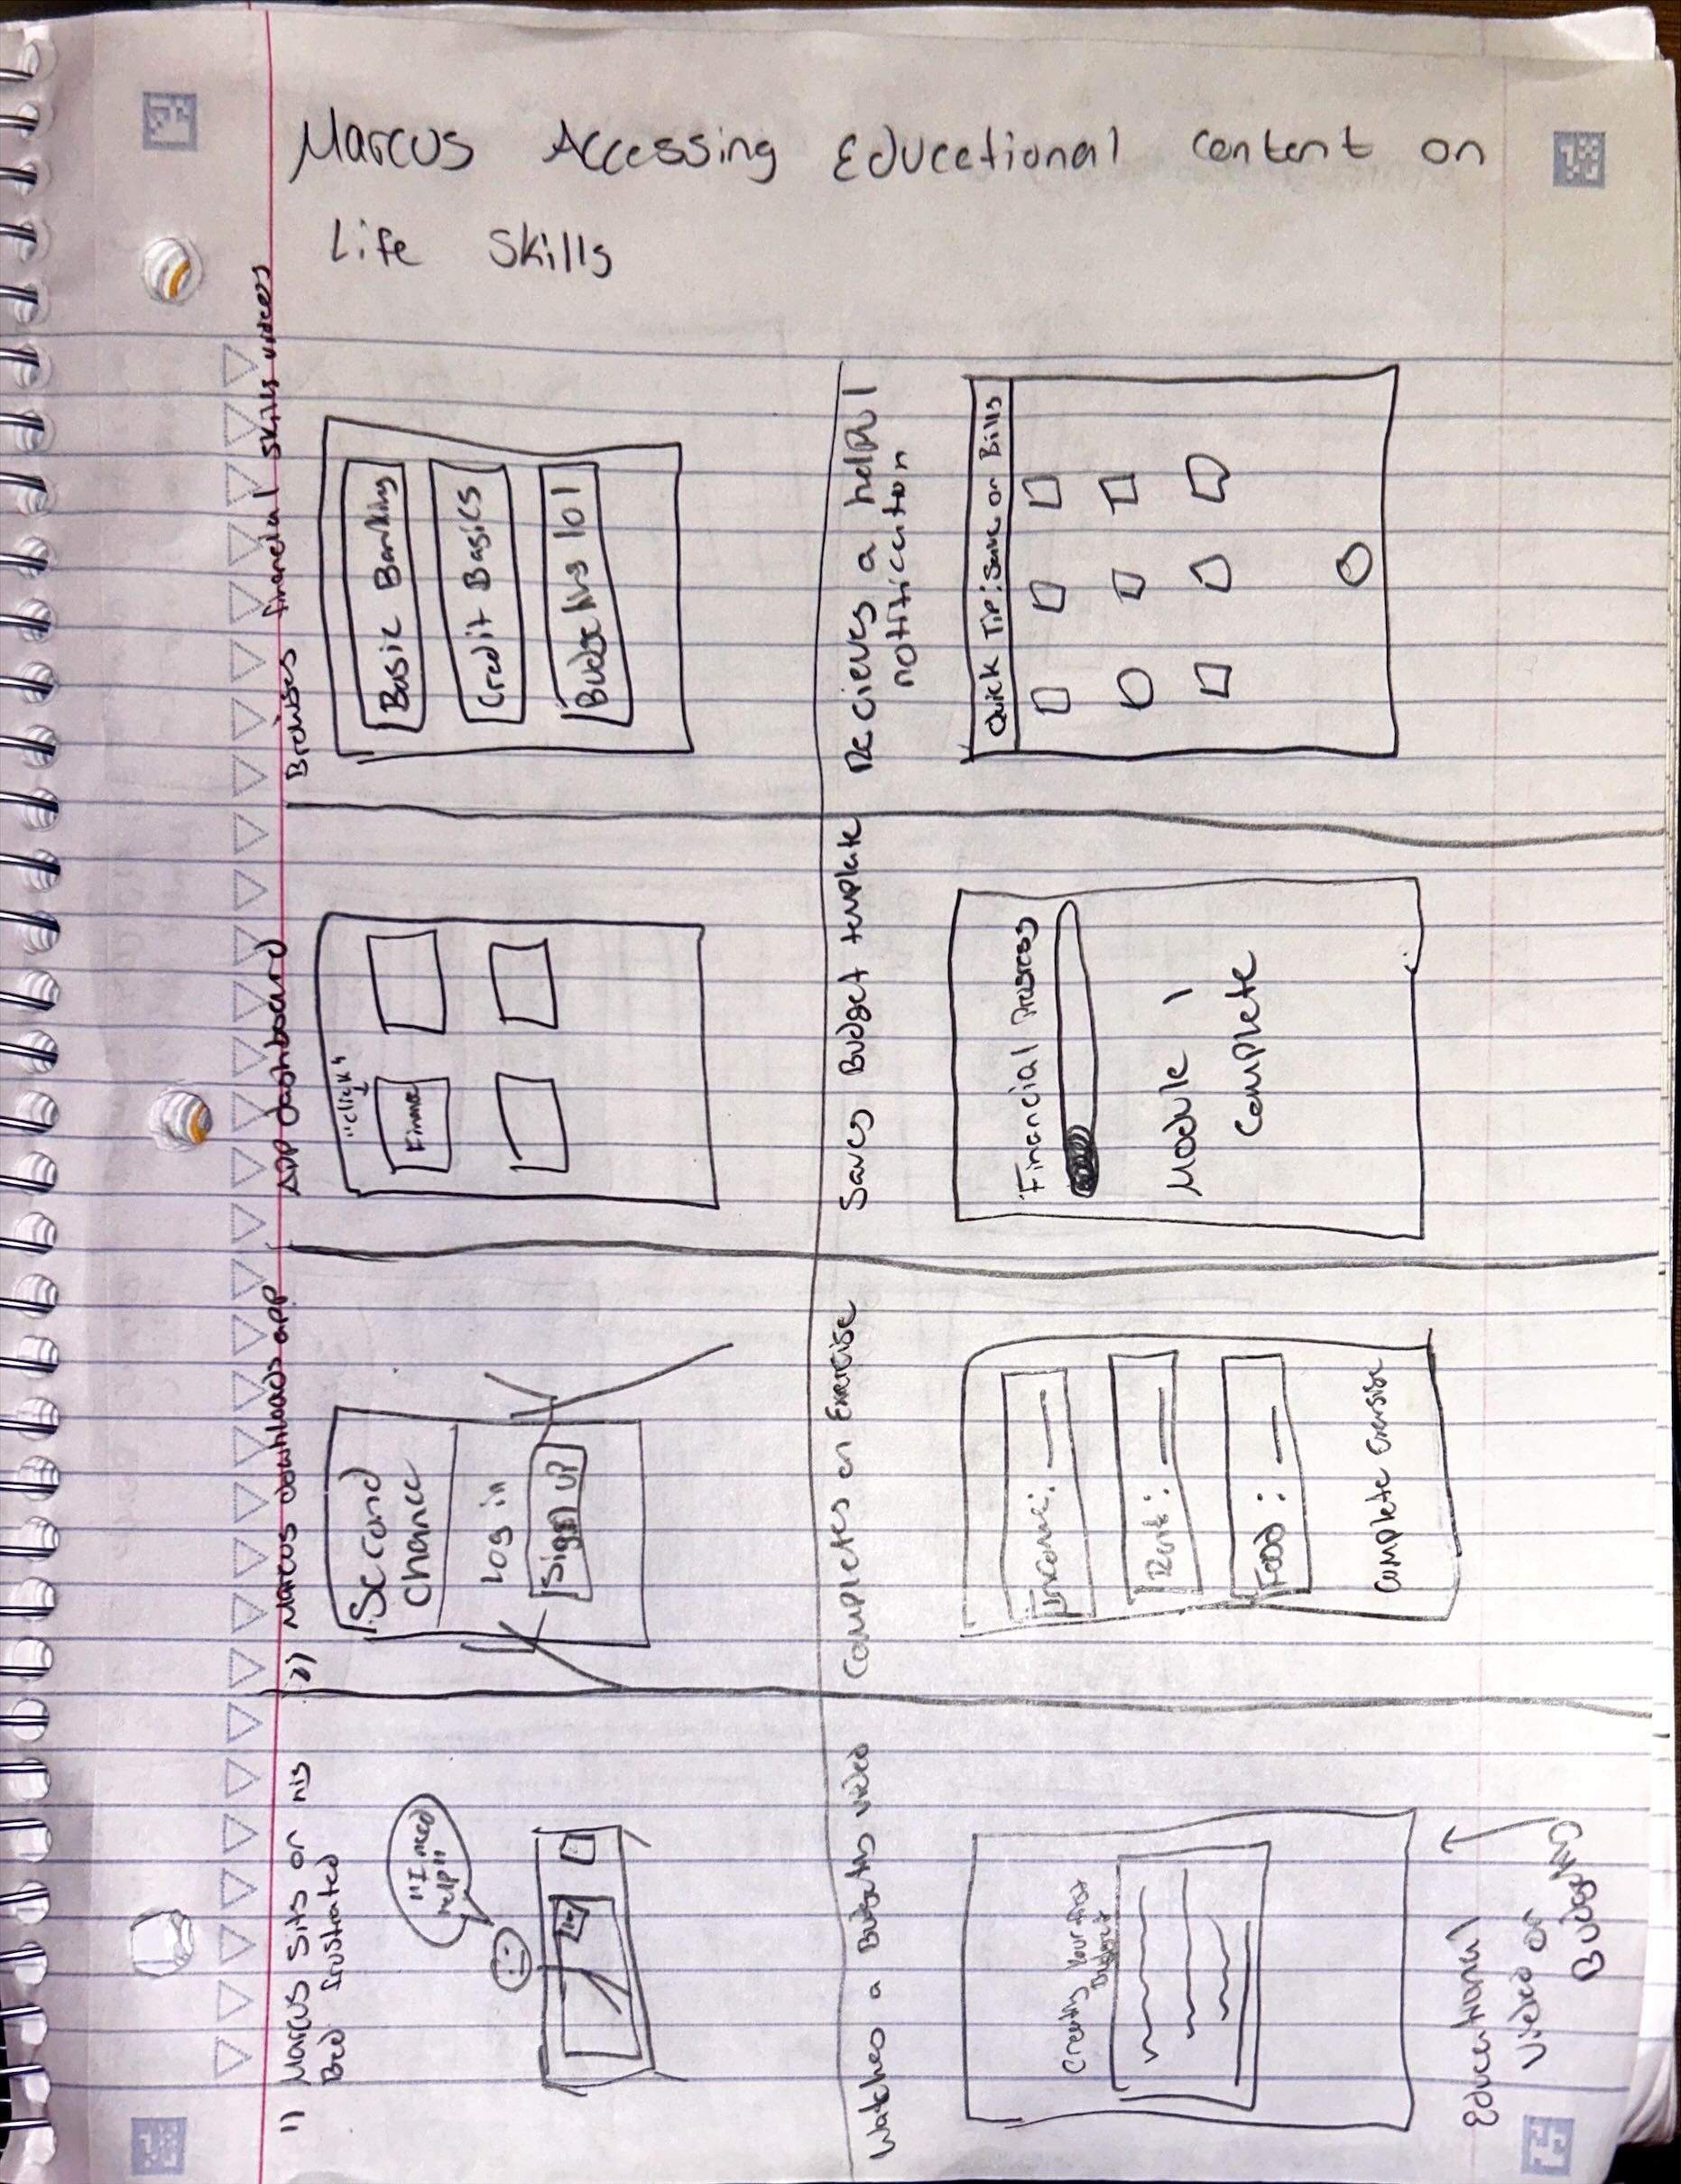 Marcus Accessing Educational content on
Life Skills
1) Marcus sits on his
Bed frustrated
"I need
help"
2) Marcus downloads app
Second
Chance
Log in
Sign up
APP dashboard
"click"
Finance
Browses financial skills videos
Basic Banking
Credit Basics
Budgeting 101
Watches a Budgets video
Creating Your first
Budget
Educational
video on
Budgeting
Completes an Exercise
Income:
Rent:
Food:
Complete Exersise
Saves Budget template
Financial Progress
Module 1
Complete
Recieves a helpful
notification
Quick Tip: Save on Bills